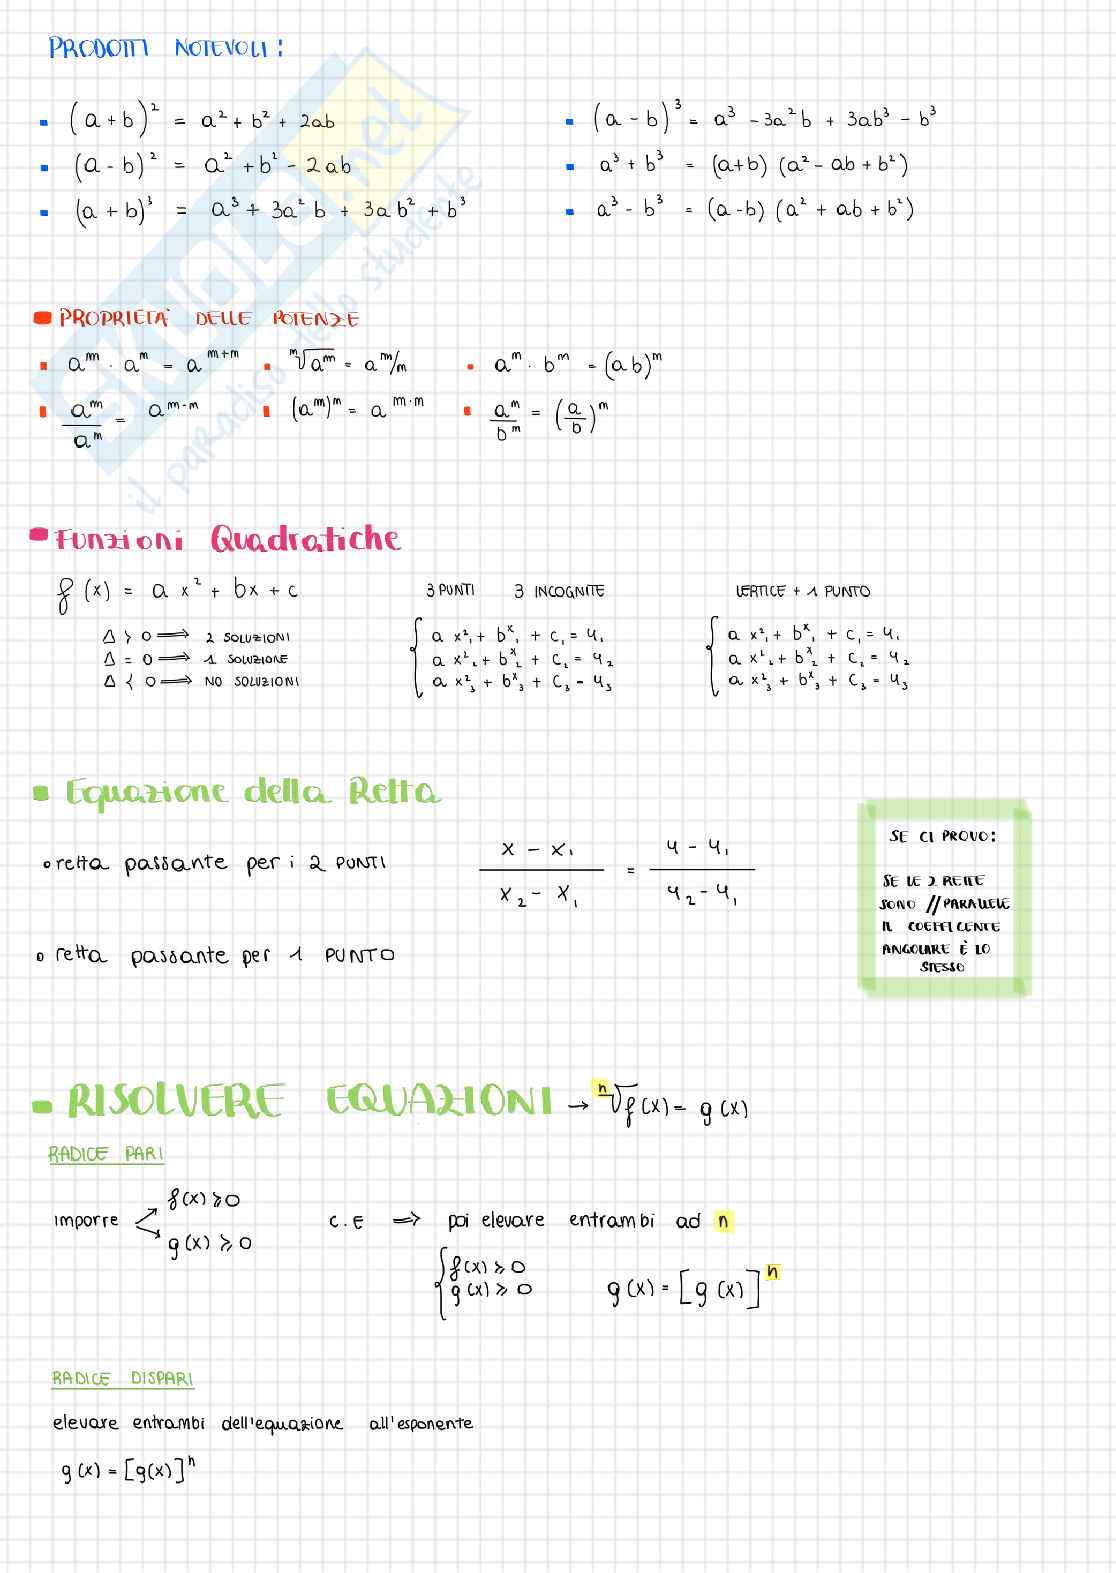 PRODOTTI NOTEVOLI:
(a+b)² = a² + b² + 2ab
(a-b)² = a² + b² - 2ab
(a+b)³ = a³ + 3a²b + 3ab² + b³
(a-b)³ = a³ - 3a²b + 3ab³ - b³
a³ + b³ = (a+b) (a² - ab + b²)
a³ - b³ = (a-b) (a² + ab + b²)
SKUOLA.net
il paradiso dello studente
PROPRIETA' DELLE POTENZE
a^m · a^m = a^m+m
^m√a^m = a^m/m
a^m · b^m = (ab)^m
a^m/a^m = a^m-m
(a^m)^m = a^m·m
a^m/b^m = (a/b)^m
Funzioni Quadratiche
f(x) = ax² + bx + c
Δ > 0 ⟹ 2 SOLUZIONI
Δ = 0 ⟹ 1 SOLUZIONE
Δ < 0 ⟹ NO SOLUZIONI
3 PUNTI 3 INCOGNITE
a x²₁ + b x₁ + c₁ = y₁
a x²₂ + b x₂ + c₂ = y₂
a x²₃ + b x₃ + c₃ = y₃
VERTICE + 1 PUNTO
a x²₁ + b x₁ + c₁ = y₁
a x²₂ + b x₂ + c₂ = y₂
a x²₃ + b x₃ + c₃ = y₃
Equazione della Retta
retta passante per i 2 PUNTI
x - x₁ / x₂ - x₁ = y - y₁ / y₂ - y₁
retta passante per 1 PUNTO
SE CI PROVO:
SE LE 2 RETTE
SONO // PARALLELE
IL COEFFICENTE
ANGOLARE È LO
STESSO
RISOLVERE EQUAZIONI → ^n√f(x) = g(x)
RADICE PARI
imporre
f(x) ⩾ 0
g(x) ⩾ 0
C.E ⟹ poi elevare entrambi ad n
f(x) ⩾ 0
g(x) ⩾ 0
g(x) = [g(x)]^n
RADICE DISPARI
elevare entrambi dell'equazione all'esponente
g(x) = [g(x)]^n